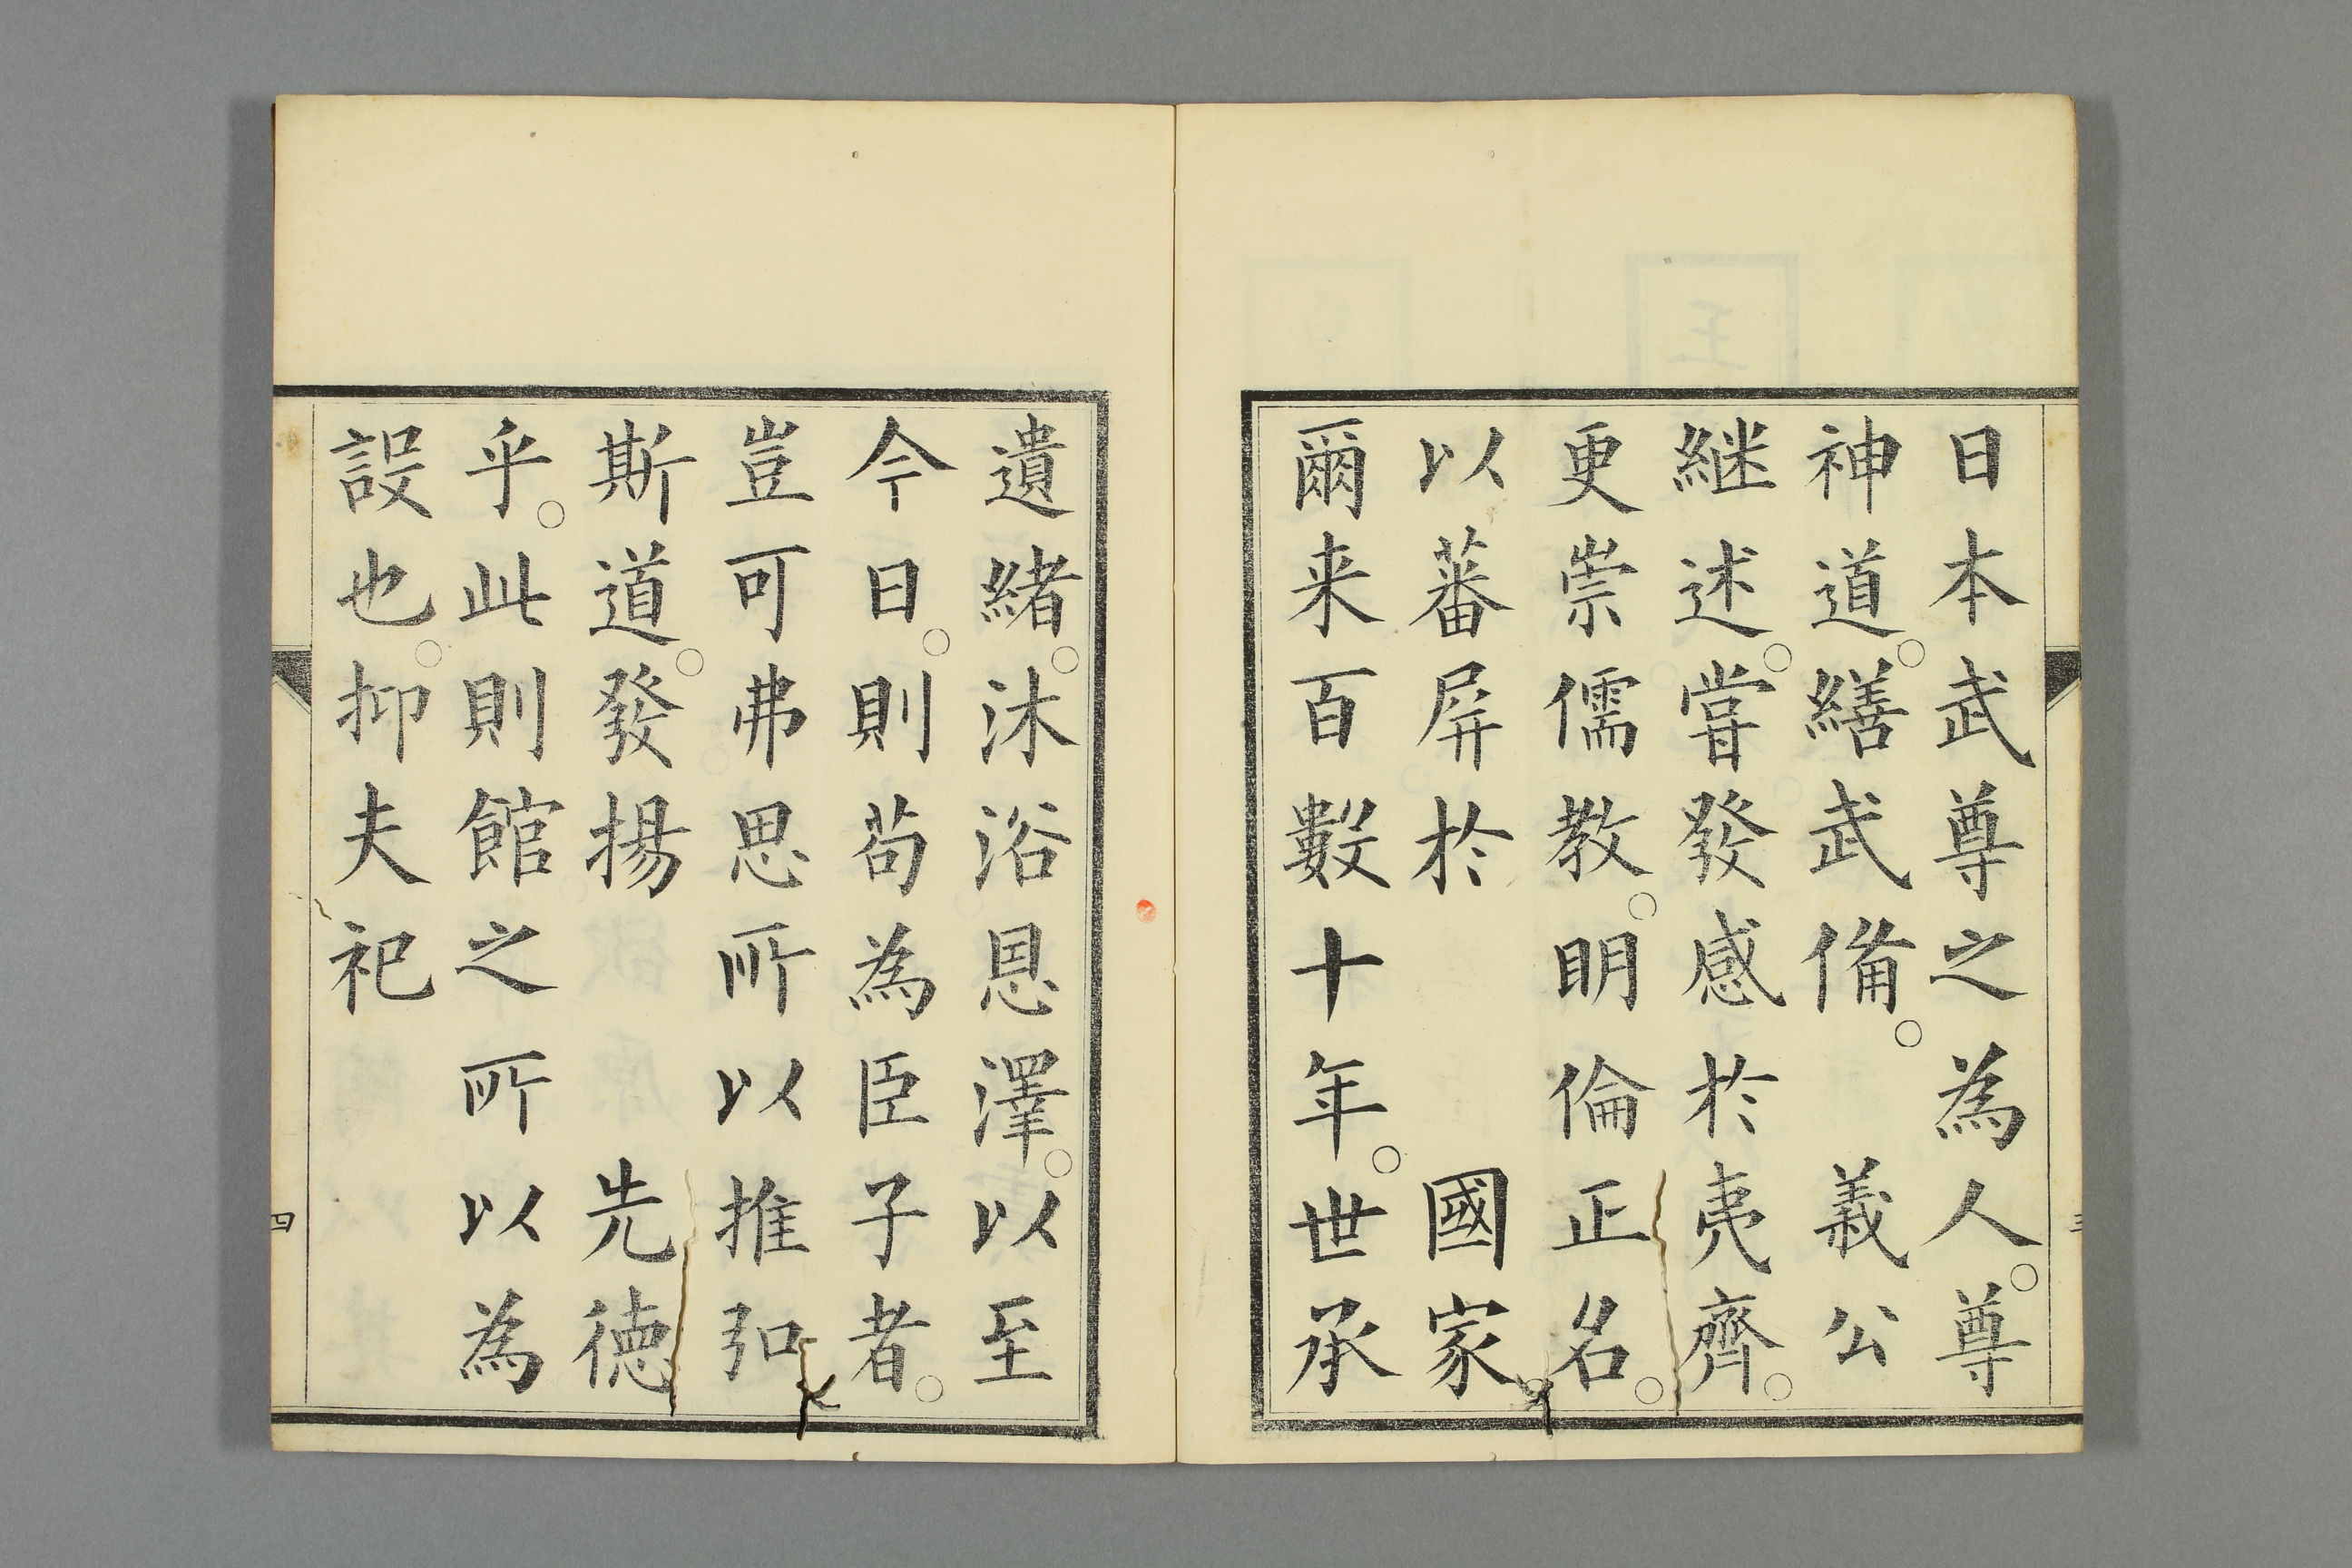 日本武尊之為人。尊
神道。繕武備。　義公
継述。嘗發感於夷齊。
更崇儒教。明倫正名。
以蕃屏於　　國家
爾来百數十年。世承
遺緒。沐浴恩澤。以至
今日。則苟為臣子者。
豈可弗思所以推弘
斯道。發揚　　先徳
乎。此則館之所以為
設也。抑夫祀
四